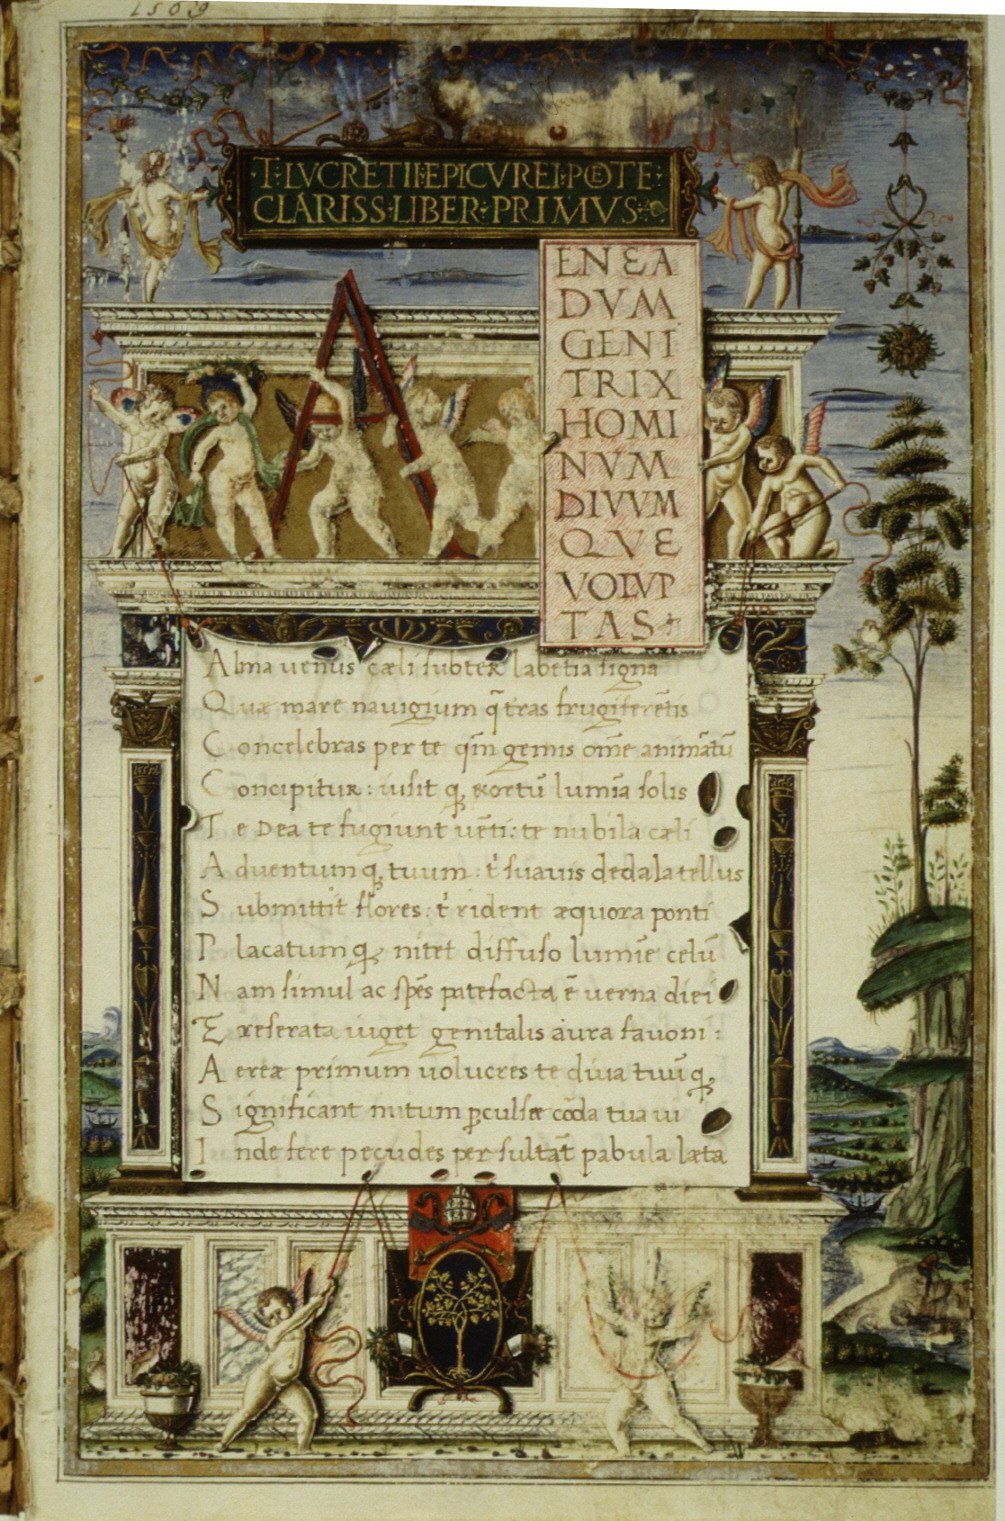 1509
·T·LVCRETII·EPICVREI·POETE·
CLARISS·LIBER·PRIMVS·
A
ENEA
DVM
GENI
TRIX
HOMI
NVM
DIVVM
QVE
VOLVP
TAS
Alma uenus cæli subter labētia signa
Quæ mare nauigium q̄ tras frugiferētis
Concelebras per te qm̄ genus om̄e animātū
Concipitur: uisit q; exortū lumīa solis
Te Dea te fugiunt uēti: te nubila cæli
Aduentumq; tuum: t' suauis dedala tellus
Submittit flores: t' rident æquora ponti
Placatumq; nitet diffuso lumīe celū
Nam simul ac spēs patefacta ē uerna diei
Ereserata uiget genitalis aura fauoni:
Aereæ primum uolucres te diua tuūq;
Significant initum ꝑculsæ corda tua ui
Inde fere pecudes per sultāt pabula læta